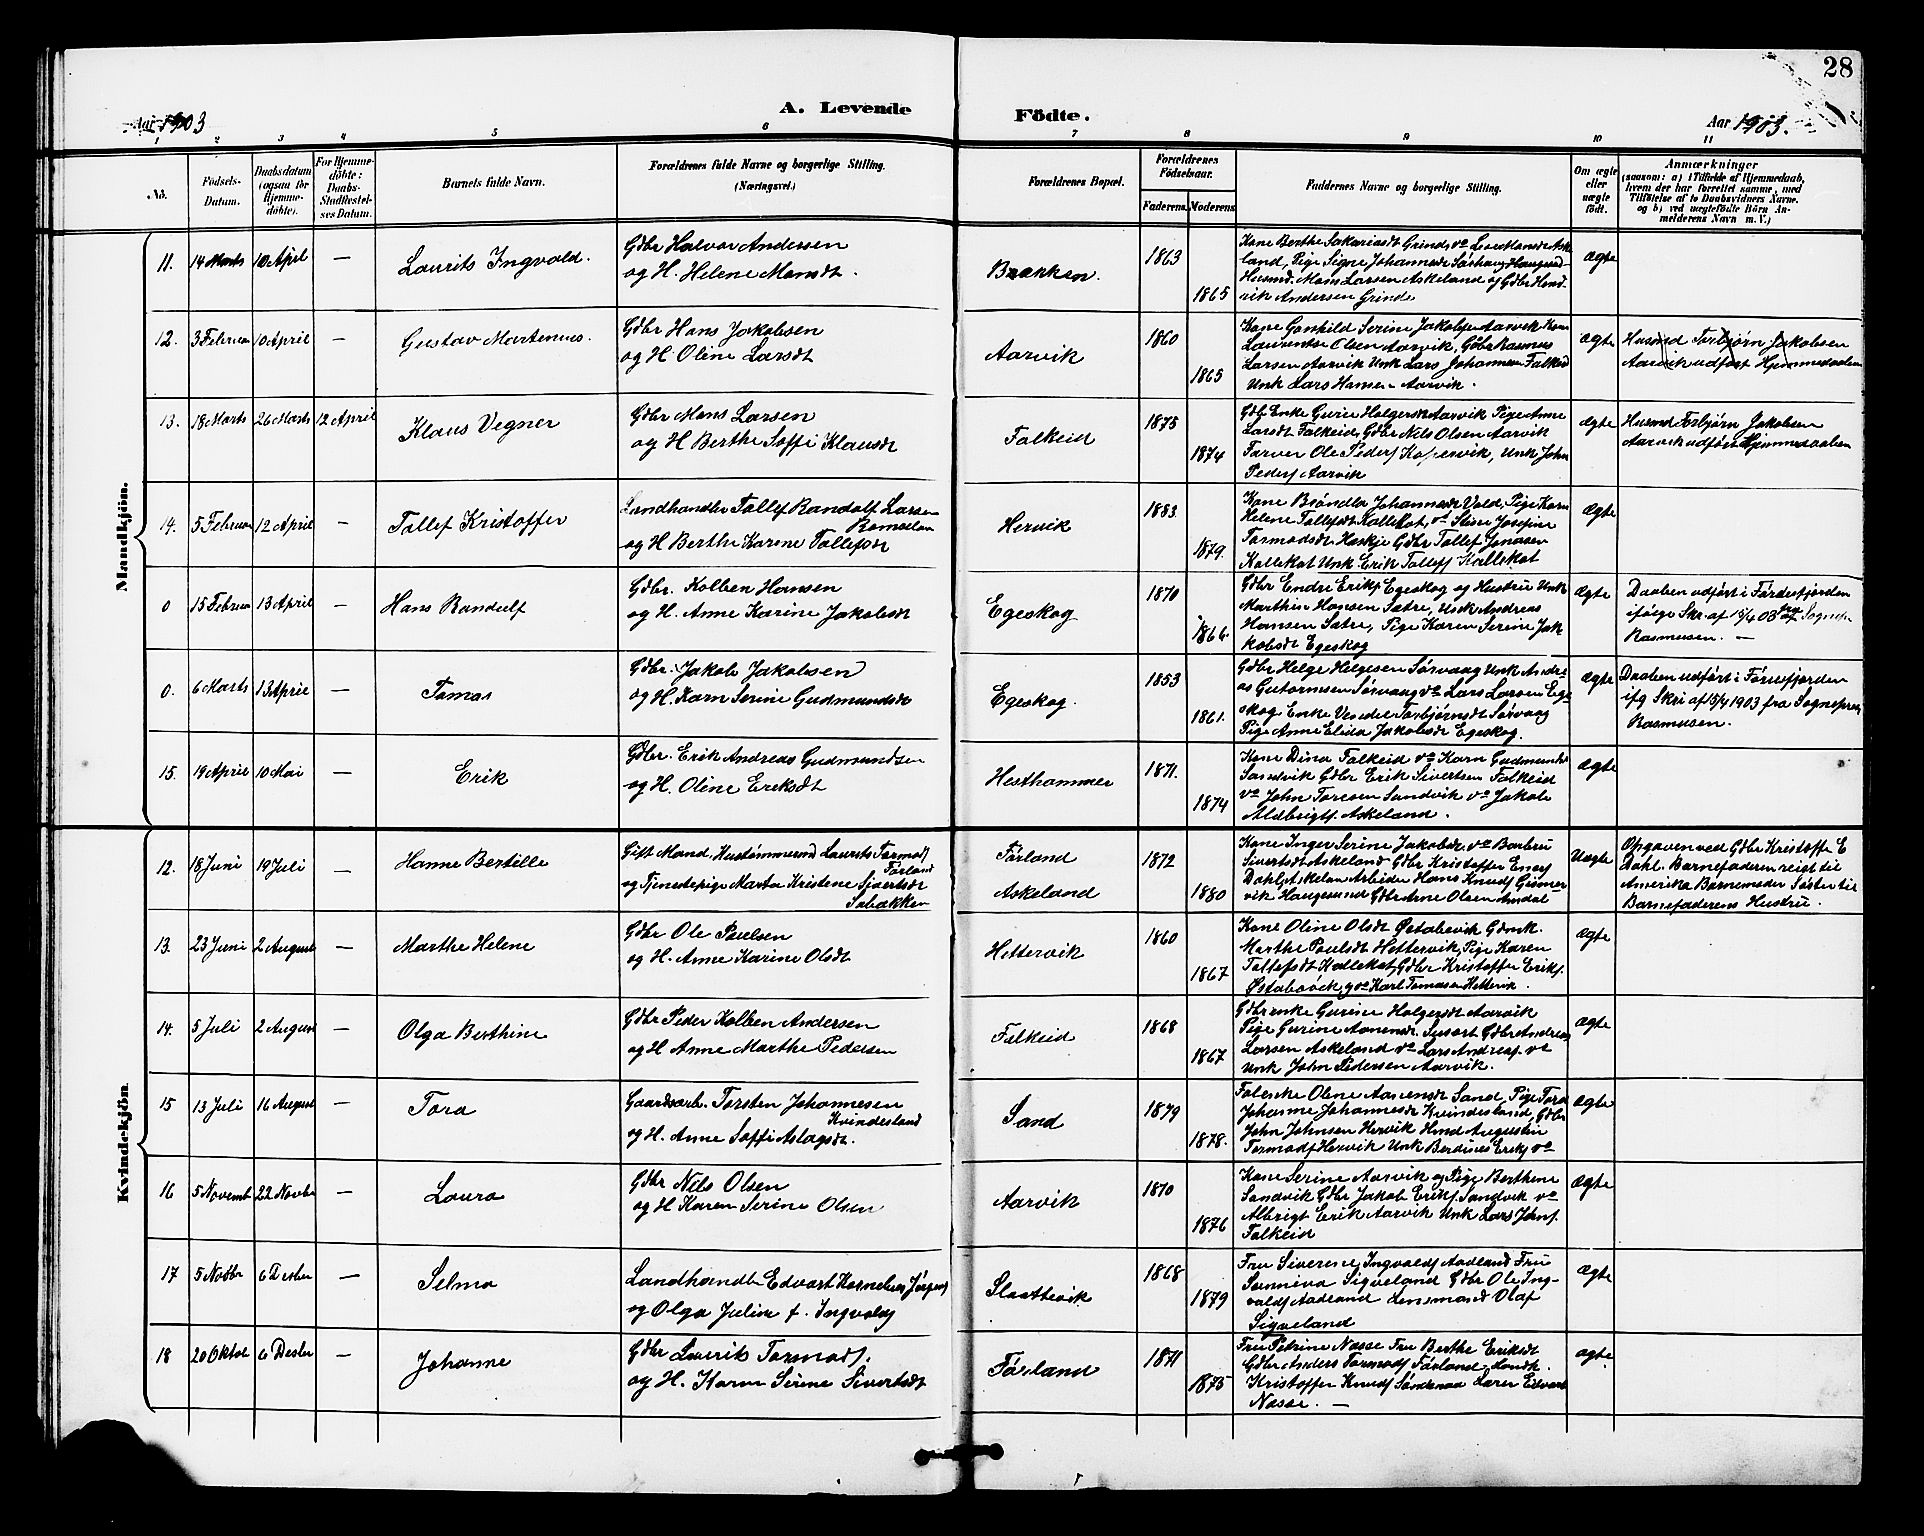 28
Aar 1903
A. Levende
Födte.
Aar 1903.
1 2 3 4 5 6 7 8 9 10 11
No.
Födsels-
Datum.
Daabsdatum
(ogsaa for
Hjemme-
döbte).
For Hjemme-
döbte:
Daabs-
Stadfæstel-
ses Datum.
Barnets fulde Navn.
Forældrenes fulde Navne og borgerlige Stilling.
(Næringsvei.)
Forældrenes Bopæl.
Forældrenes
Födselsaar.
Faderens.
Moderens.
Faddernes Navne og borgerlige Stilling.
Om ægte
eller
uægte
födt.
Anmærkninger
(saasom: a) i Tilfælde af Hjemmedaab,
hvem der har forrettet samme, med
Tilföielse af to Daabsvidners Navne.
og b) ved uægtefödte Börn An-
melderens Navn m. V.)
Mandkjön.
11. 14 Marts 10 April —
Laurits Ingvald.
Gdbr Halvor Andersen
og H. Helene Monsdt.
Brækken.
1863
1865
Kone Berthe Sakariasdt Grinde, vo Lars Monsdt Ask
land, Pige Signe Johannesdt Sørhaug Haugesund
Husmd. Mons Larsen Askeland og Gdbr Hend
rik Andersen Grinde
Ægte
12. 3 Februar 10 April —
Gustav Martenus.
Gdbr Hans Jakobsen
og H. Oline Larsdt
Aarvik
1860
1865
Kone Gonhild Serine Jakobsen Aarvik Kone
Laurentse Olsen Aarvik, Gdbr Rasmus
Larsen Aarvik Unk Lars Johannesen Falkeid
Unk Lars Hansen Aarvik.
Ægte
Husmd Torbjørn Jakobsen
Aarvik udført Hjemmedaaben
13. 18 Marts 26 Marts 12 April
Klaus Vegner
Gdbr Mons Larsen
og H Berthe Soffi Klausdt
Falkeid
1875
1874
Gdb Enke Gurie Holgersdt Aarvik Pige Anne
Larsdt Falkeid, Gdbr Nils Olsen Aarvik
Farver Ole Peders Kopervik, Unk John
Peders Aarvik
Ægte
Husmd Torbjørn Jakobsen
Aarvik udført Hjemmedaaben
14. 5 Februar 12 April —
Tollef Kristoffer
Landhandler Tollef Randolf Larsen
og H Berthe Karene Tollefsdt
Hervik
1883
1879.
Kone Brøndla Johannesdt Vold, Pige Karn
Helene Tollefsdt Kallekot, vo Stine Josefine
Tormodsdt Heskje Gdbr Tollef Jonasen
Kallekot Unk Erik Tollefs Kallekot
Ægte
0 15 Februar 13 April —
Hans Randulf
Gdbr. Kolben Hansen
og H. Anne Karine Jakobsdt
Egeskog
1870
1866.
Gdbr Endre Eriks Egeskog og Hustru Unk
Marthin Hansen Sætre, Unk Andreas
Hansen Sætre, Pige Karen Serine Jak
kobsdt Egeskog
Ægte
Daaben udført i Førdesfjorden
ifølge Skr. af 15/4 03 fra Sognepr.
Rasmusen. —
0. 6 Marts 13 April —
Tomas
Gdbr. Jakob Jakobsen
og H. Karn Serine Gudmundsdt
Egeskog.
1853
1861.
Gdbr Helge Helgesen Sørvaag Unk Andre
as Gutormsen Sørvaag vo Lars Larsen Ege
skog Enke Vendel Torbjørnsdt Sørvaag
Pige Anne Elida Jakobsdt Egeskog.
Ægte
Daaben udført i Førresfjorden
ifg Skri af 15/4 1903 fra Sognepræst
Rasmusen.
15. 19 April 10 Mai —
Erik
Gdbr. Erik Andreas Gudmundsen
og H. Oline Eriksdt
Hesthammer
1871.
1874
Kone Dina Falkeid vo Karn Gudmunds
Sandvik Gdbr Erik Sivertsen Falkeid
vo John Toresen Sandvik vo Jakob
Aldbrigts. Askeland.
Ægte
Kvindekjön.
12. 18 Juni 19 Juli —
Hanne Bertille
Gift Mand, Hustømmermd Laurits Tormods
Førland
og Tjenestepige Marta Kristene Sivertsdt
Sabækken
Førland
Askeland
1872
1880
Kone Inger Serine Jakobsdt. vo Barbru
Sivertsdt Askeland Gdbr Kristoffer Enars
Dahl, Askelan Arbeider Hans Knuds Gismer
vik Haugesund Gdbr Arne Olsen Amdal
Uægte
Opgaven ved Gdbr Kristoffe E
Dahl. Barnefaderen reigt til
Amerika Barnemoder Søster til
Barnefaderens Hustru.
13. 23 Juni 2 August —
Marthe Helene
Gdbr Ole Paulsen
og H. Anne Karine Olsdt
Hettervik
1860
1867
Kone Oline Olsdt Østabøvik Gdmk.
Marthe Paulsdt Hettervik, Pige Karen
Tollefsdt Kallekot, Gdbr Kristoffer Eriks.
Østabøvik, g vo Karl Tomasen Hettervik.
Ægte
14. 5 Juli 2 August —
Olga Berthine
Gdbr Peder Kolben Andersen
og H Anne Marthe Pedersen
Falkeid
1868
1867
Gdbr enke Gurine Holgersdt Aarvik
Pige Gurine Aanensdt. Sysørt Gdbr Andreas
Larsen Askeland vo Lars Andreas. vo
Unk John Pedersen Aarvik.
Ægte
15 13 Juli 16 August —
Tora
Gaardsarb. Torsten Johannesen
Kvindesland
og H. Anne Soffi Aslagsdt.
Sand
1879
1878.
Føleske Olene Aanensdt Sand, Pige Tora
Johanne Johannesdt Kvindesland, Gdbr
John Johnsen Hervik Hmd Augustin
Tormods Hervik Unk Berdines Eriks vo
Ægte
16 5 Novemb 22 Novbr —
Laura
Gdbr Nils Olsen
og H Karen Serine Olsen
Aarvik
1870
1876
Kone Serine Aarvik og Pige Berthene
Sandvik Gdbr Jakob Eriks. Sandvik vo
Albrigt Erik Aarvik Unk Lars Johns.
Falkeid
Ægte
17 5 Novbr 6 Desber —
Selma
Landhandle Edvart Kornelius Jørgens
og Olga Juline f. Ingvalds
Slaattevik
1868
1879
Fru Siverene Ingvalds Aadland Fru
Sunneva Sigveland Gdbr Ole Ing-
valds Aadland Lensmand Olaf
Sigveland
Ægte
18 20 Oktob 6 Desber —
Johanne
Gdbr Laurits Tormods.
og H. Karn Serine Sivertsdt
Førland
1871
1875
Fru Petrine Næsse Fru Berthe Eriksdt
Gdbr Anders Tormods Førland, Landk.
Kristoffer Knuds Søndenaa Lærer Edvart
Næsse. —
Ægte.